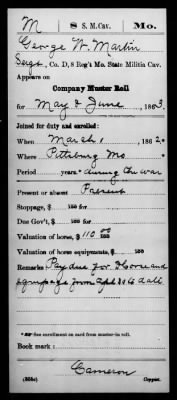 M 8 S. M. Cav. Mo.
George W. Martin
Sergt., Co. D, 8 Reg't Mo. State Militia Cav.
Appears on
Company Muster Roll
for May & June, 1863.
Joined for duty and enrolled:
When March 1, 1862.*
Where Pittsburg Mo
Period years* during the war
Present or absent Present
Stoppage, $ 100 for
Due Gov't, $ 100 for
Valuation of horse, $ 110 00/100
Valuation of horse equipments, $ 100
Remarks: Pay due for Horse and
equipage from April 30 to date
*See enrollment on card from muster-in roll.
Book mark:
Cameron
(858c) Copyist.